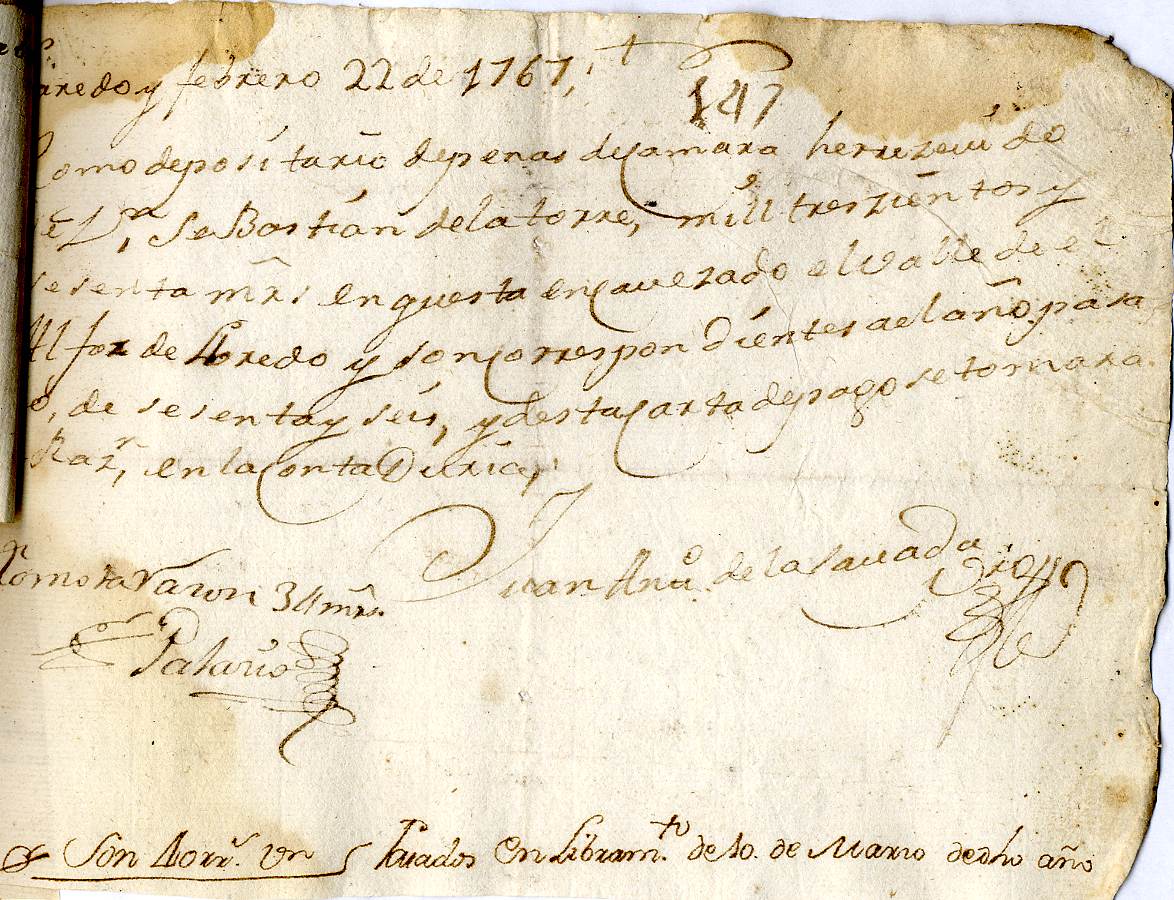 Laredo y febrero 22 de 1767,
147
Como depositario de penas de camara he rrezeuido
de Dn, Se Bastian de la torre, mill treszientos y
sesenta mrs en questa encauezado el Valle de
Alfoz de Lloredo y son correspondientes a el año pasa
do, de sesenta y seis, y desta carta de pago se tomara
Razn, en la contaDuria,
Juan Anto. de la Sauada
Tomo la razon 34 mrs.
Palazio
Son 40 rrs. Vn
en Libramto. de 10. de Marzo de dho año